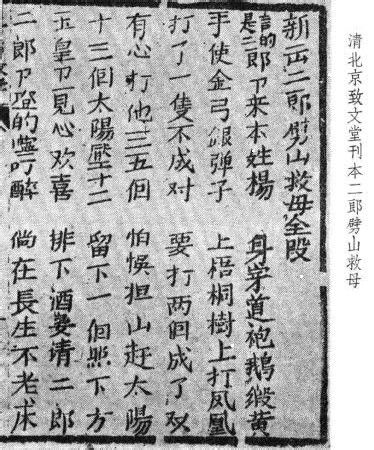 清北京致文堂刊本二郎劈山救母
新二郎劈山救母全段
言的是二郎卩来本姓楊 身穿道袍鵝緞黄
手使金弓銀弹子 上梧桐樹上打鳳凰
打了一隻不成对 要打两個成了双
有心打他三五個 怕悮担山赶太陽
十三個太陽壓十二 留下一個照下方
玉皇卩一見心欢喜 排下酒宴请二郎
二郎卩的叮醉 倘在長生不老床